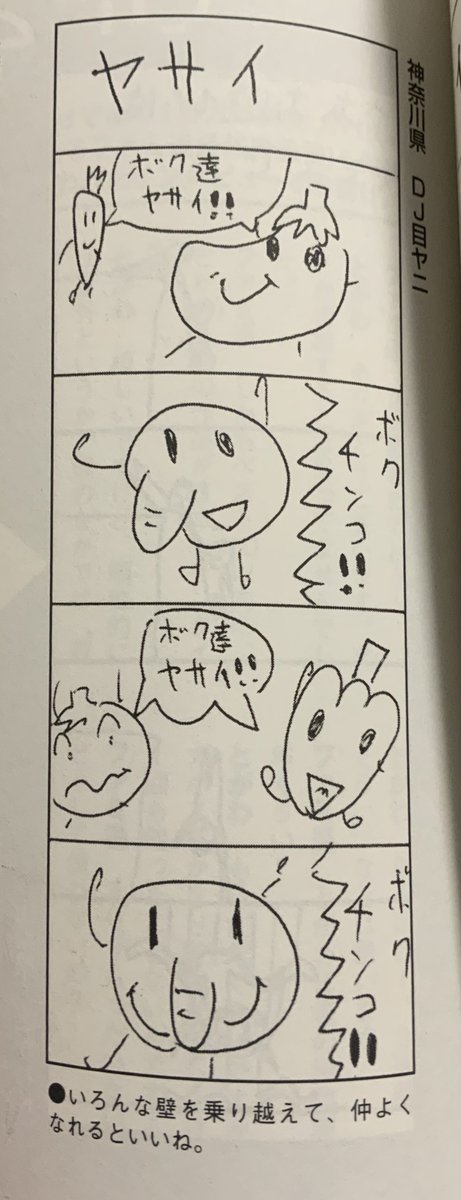 ヤサイ
神奈川県 DJ目ヤニ
ボク達
ヤサイ!!
ボク
チンコ!!
ボク達
ヤサイ!!
ボク
チンコ!!
●いろんな壁を乗り越えて、仲よく
なれるといいね。